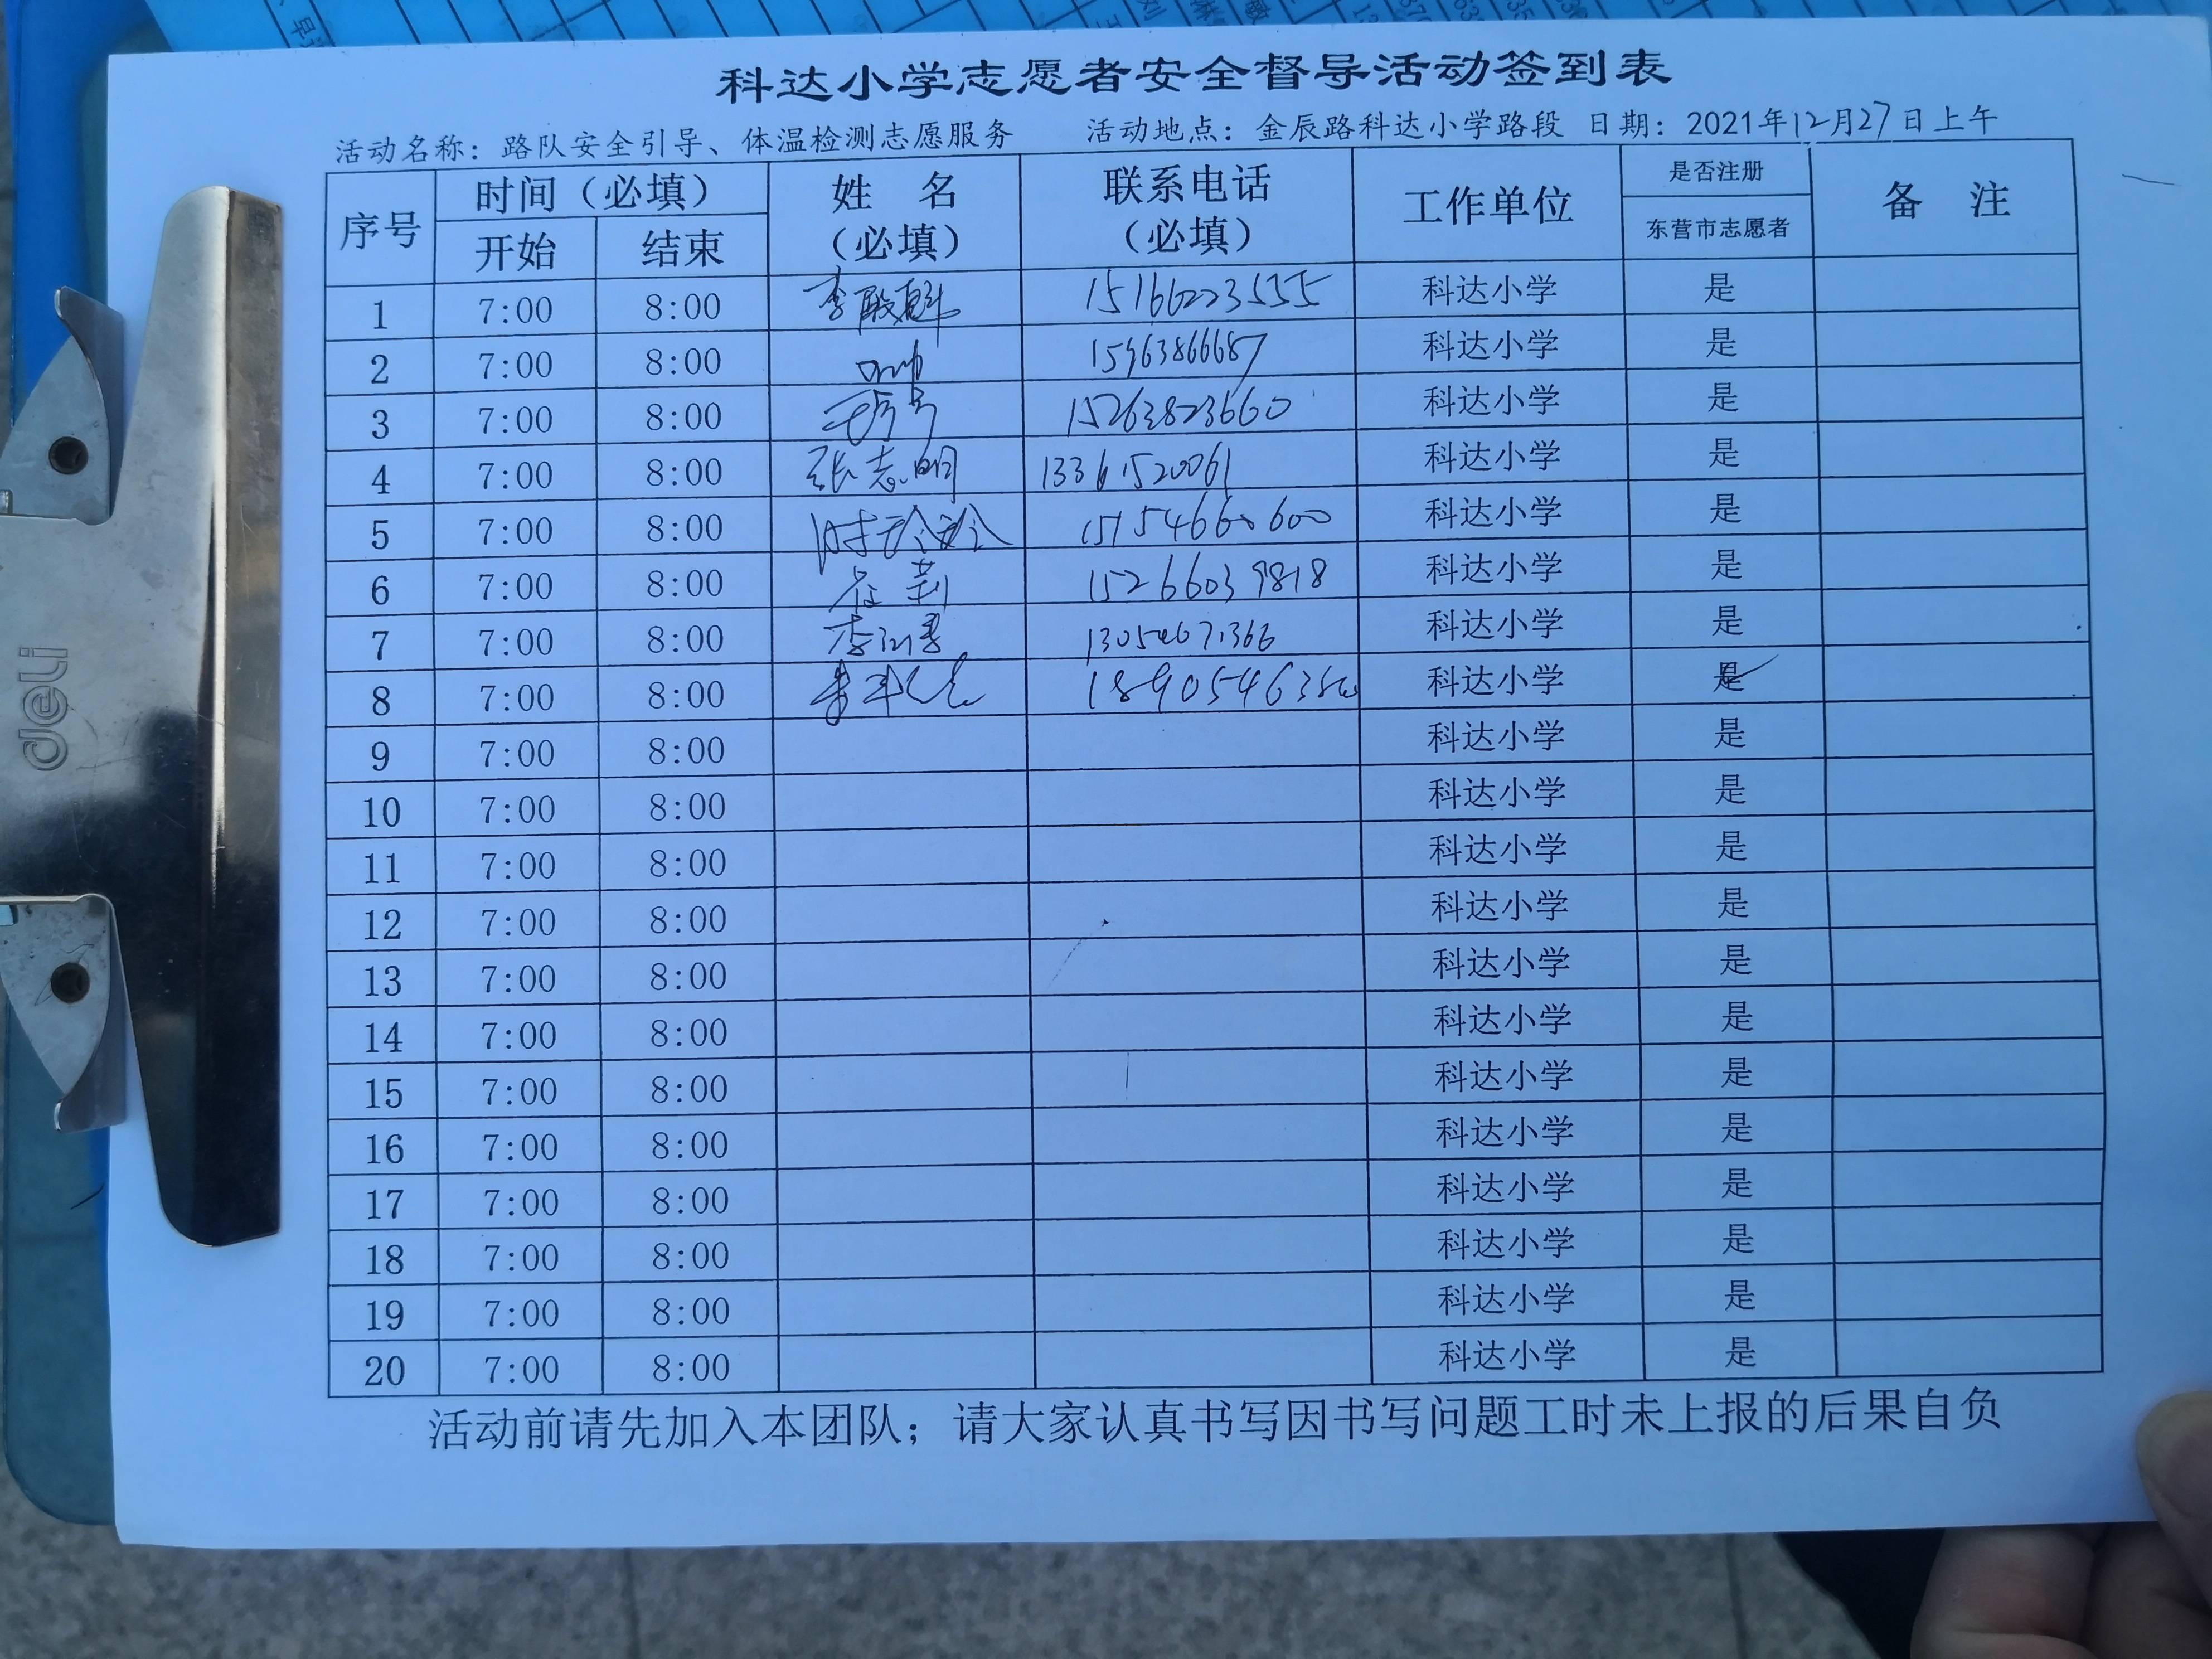 科达小学志愿者安全督导活动签到表
活动名称：路队安全引导、体温检测志愿服务 活动地点：金辰路科达小学路段 日期：2021年12月27日上午
序号 时间（必填） 姓 名（必填） 联系电话（必填） 工作单位 是否注册 备 注
开始 结束 东营市志愿者
1 7:00 8:00 李殿魁 15166223555 科达小学 是
2 7:00 8:00 15963866687 科达小学 是
3 7:00 8:00 15263823660 科达小学 是
4 7:00 8:00 张志明 13361520061 科达小学 是
5 7:00 8:00 时玲玲 15154660600 科达小学 是
6 7:00 8:00 15266039818 科达小学 是
7 7:00 8:00 13054671366 科达小学 是
8 7:00 8:00 科达小学 是
9 7:00 8:00 科达小学 是
10 7:00 8:00 科达小学 是
11 7:00 8:00 科达小学 是
12 7:00 8:00 科达小学 是
13 7:00 8:00 科达小学 是
14 7:00 8:00 科达小学 是
15 7:00 8:00 科达小学 是
16 7:00 8:00 科达小学 是
17 7:00 8:00 科达小学 是
18 7:00 8:00 科达小学 是
19 7:00 8:00 科达小学 是
20 7:00 8:00 科达小学 是
活动前请先加入本团队；请大家认真书写因书写问题工时未上报的后果自负
deli